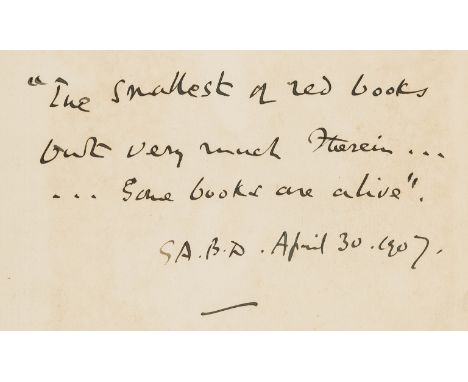 "The smallest of red books
but very much therein ...
... Some books are alive".
G A. B. D. April 30. 1907.